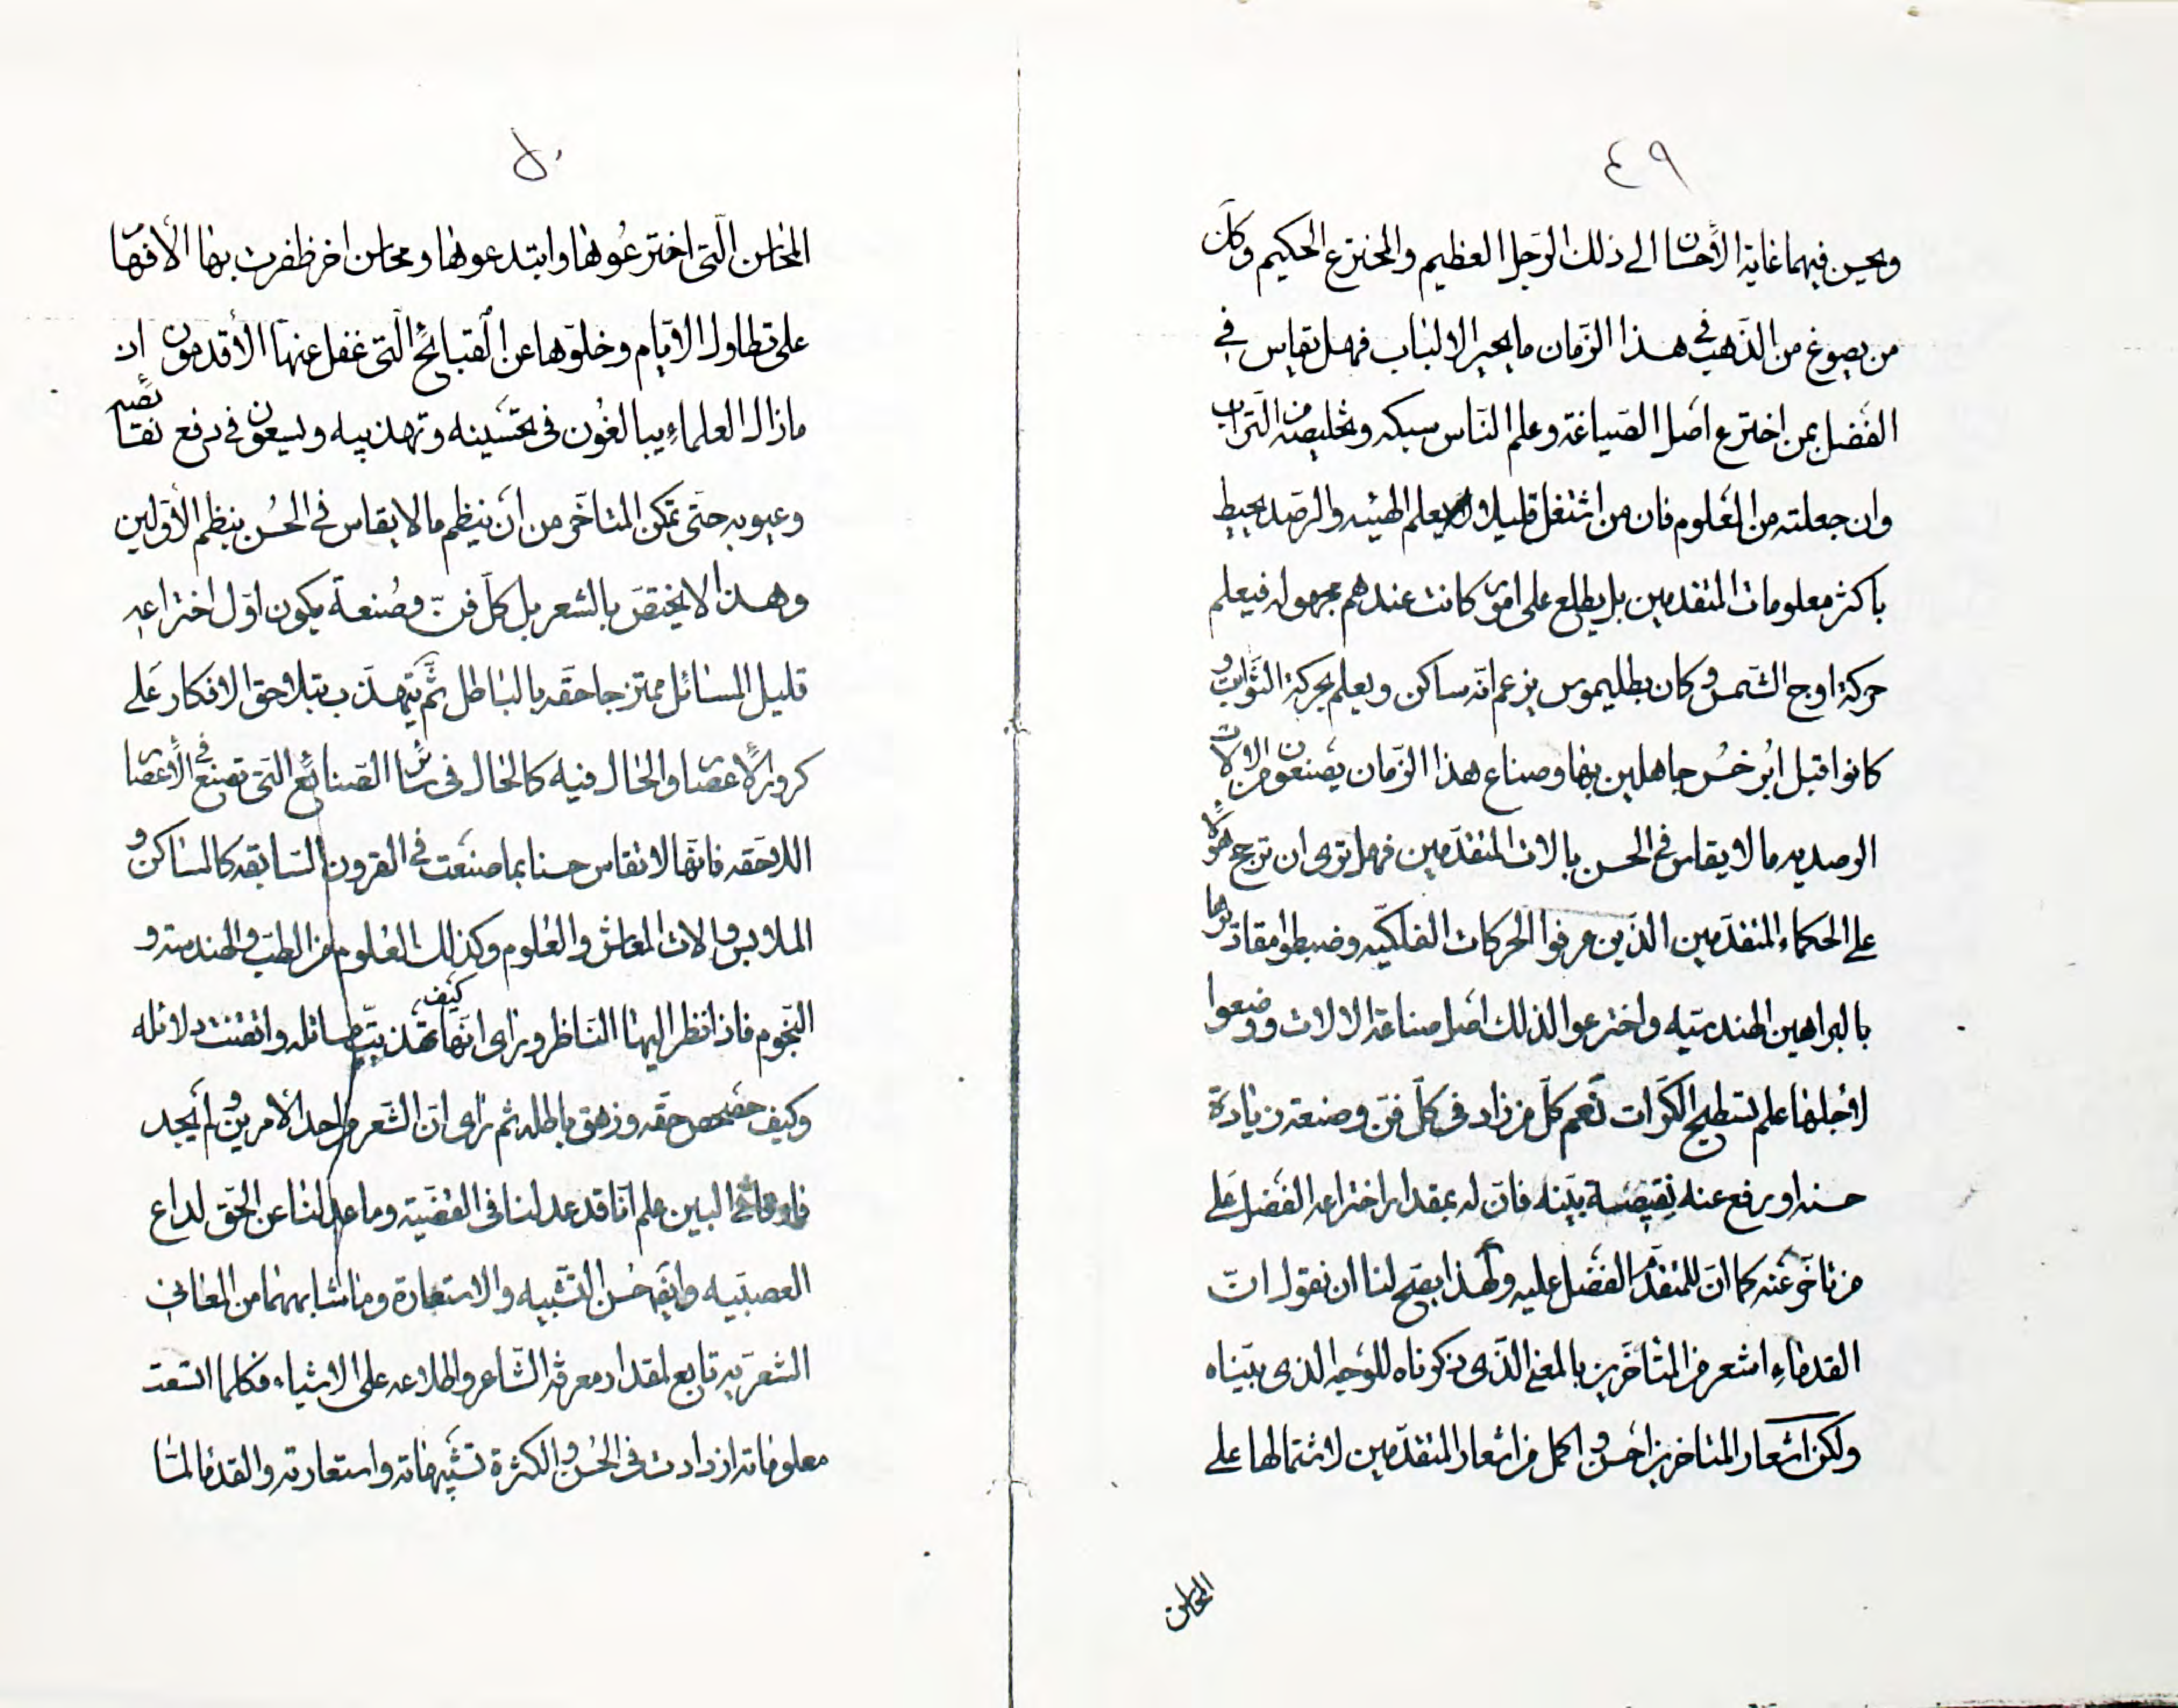 ٤٩
ويحسن فيهما غاية الأحسان الى ذلك الرّجل العظيم والمخترع الحكيم وكلّ
من يصوغ من الذّهب في هذا الزّمان ما يحير الالباب فهل يقاس في
الفضل بمن اخترع اصل الصّياغة وعلم النّاس سبكه وتخليصه من التّراب
وان جعلته من العلوم فان من اشتغل قليلا بعلم الهيئه والرصد يحيط
باكثر معلومات المتقدمين بل يطلع على امور كانت عندهم مجهوله فيعلم
حركة اوج الشّمس وكان بطليموس يزعم انّه ساكن ويعلم بحركة الثّوابت و
كانوا قبل ابرخس جاهلين بها وصناع هذا الزّمان يصنعون من الالات
الرصديه ما لا يقاس في الحسن بالات المتقدّمين فهل ترى ان ترجح هؤلاء
على الحكماء المتقدّمين الذّين عرفوا الحركات الفلكيّه وضبطوا مقاديرها
بالبراهين الهندسيّه واخترعوا لذلك اصل صناعة الالات ووضعوا
لأجلها علم تسطيح الكرات نعم كلّ من زاد في كلّ فنّ وصنعة زيادة
حسنه او يرفع عنه نقيصة بيّنه فانّ له بمقدار اختراعه الفضل على
من تاخّر عنه كما انّ للمتقدّم الفضل عليه ولهذا يصحّ لنا ان نقول انّ
القدماء اشعر من المتأخّرين بالمعنى الذّى ذكرناه للوجه الذى بيّناه
ولكن اشعار المتاخرين احسن واكمل من اشعار المتقدّمين لاشتمالها على
المحاسن
٥٠
المحاسن الّتى اخترعوها وابتدعوها ومحاسن اخر ظفرت بها الأفهام
على تطاول الايّام وخلوّها عن القبائح الّتى غفل عنها الأقدمون اذ
ما زال العلماء يبالغون في تحسينه وتهذيبه ويسعون في رفع نقائصه
وعيوبه حتّى تمكن المتاخّر من ان ينظم ما لا يقاس في الحسن بنظم الأوّلين
وهذا لا يختصّ بالشعر بل كلّ فنّ وصنعة يكون اوّل اختراعه
قليل المسائل ممتزجا حقّه بالباطل ثمّ يتهذّب بتلاحق الافكار على
كرور الأعصار والحال فيه كالحال في سائر الصّنائع الّتى تصنع في الأعصار
اللاحقه فانّها لا تقاس حسنا بما صنعت في القرون السّابقه كالمساكن و
الملابس والات المعاش والعلوم وكذلك العلوم من الطبّ والهندسة و
النّجوم فاذا نظر اليها النّاظر ورأى انّها كيف تهذّبت مسائله واتقنت دلائله
وكيف حصحص حقّه وزهق باطله ثم رأى انّ الشّعر من احد الأمرين ولم يجد
البين علم انّا قد عدلنا في القضيّه وما عدلنا عن الحقّ لداع
العصبيّه وايضا حسن التّشبيه والاستعارة وما شابههما من المعانى
الشعرّيه تابع لمقدار معرفة الشّاعر واطلاعه على الاشياء فكلما اتسعت
معلوماته ازدادت في الحسن والكثرة تشبيهاته واستعارته والقدماء لمّا